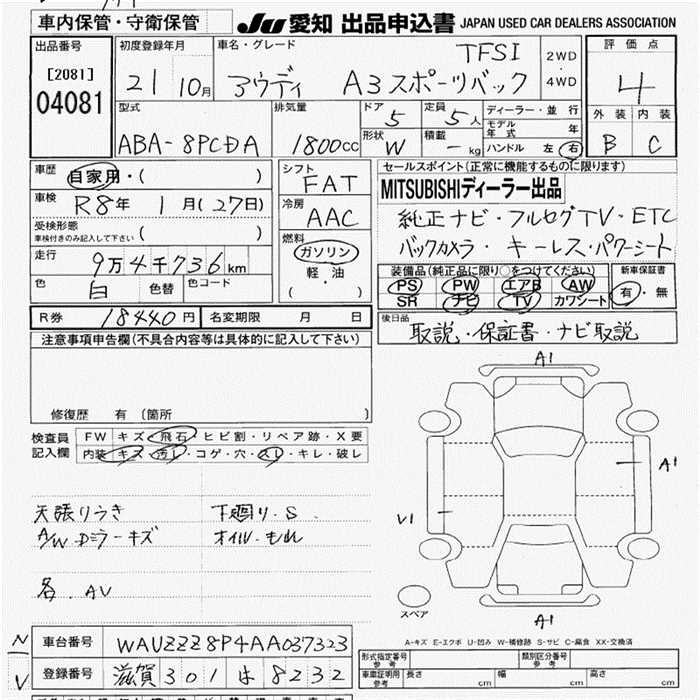 車内保管・守衛保管
JU 愛知 出品申込書 JAPAN USED CAR DEALERS ASSOCIATION
出品番号 初度登録年月 車名・グレード TFSI 2WD・4WD 評価点
[2081] 04081 21 10月 アウディ A3スポーツバック 4
型式 排気量 ドア 5 定員 5人 ディーラー・並行 外装 内装
モデル年式 年
ABA-8PCDA 1800cc 形状 W 積載 -kg ハンドル 左 右 B C
車歴 自家用・( ) シフト FAT セールスポイント(正常に機能するものに限ります)
MITSUBISHIディーラー出品
車検 R8年 1月(27日) 冷房 AAC 純正ナビ・フルセグTV・ETC
受検形態 車検付きのみ記入して下さい ( ) 燃料 ガソリン 軽・油 (・) バックカメラ・キーレス・パワーシート
走行 9万4千736km 装備品(純正品に限り○をつけてください) 新車保証書
PS PW エアB AW 有・無
色 白 色替 色コード SR ナビ TV カワシート
R券 18440円 名変期限 月 日 後日品
取説・保証書・ナビ取説
注意事項申告欄(不具合内容等は具体的に記入して下さい)
修復歴 有 (箇所 )
検査員 FW キズ・飛石・ヒビ割・リペア跡・X要
記入欄 内装 キズ・汚レ・コゲ・穴・スレ・キレ・破レ
A1
A1
V1
天張りうき 下廻り.S.
A/W Dミラーキズ オイルもれ
各.AV
スペア
A1
A-キズ E-エクボ U-凹み W-補修跡 S-サビ C-腐食 XX-交換済
N 車台番号 WAUZZZ8P4AA037323 形式指定番号 参考 類別区分番号 参考
V 登録番号 滋賀301は8232 車庫証明用 参考 長さ cm 幅 cm 高さ cm